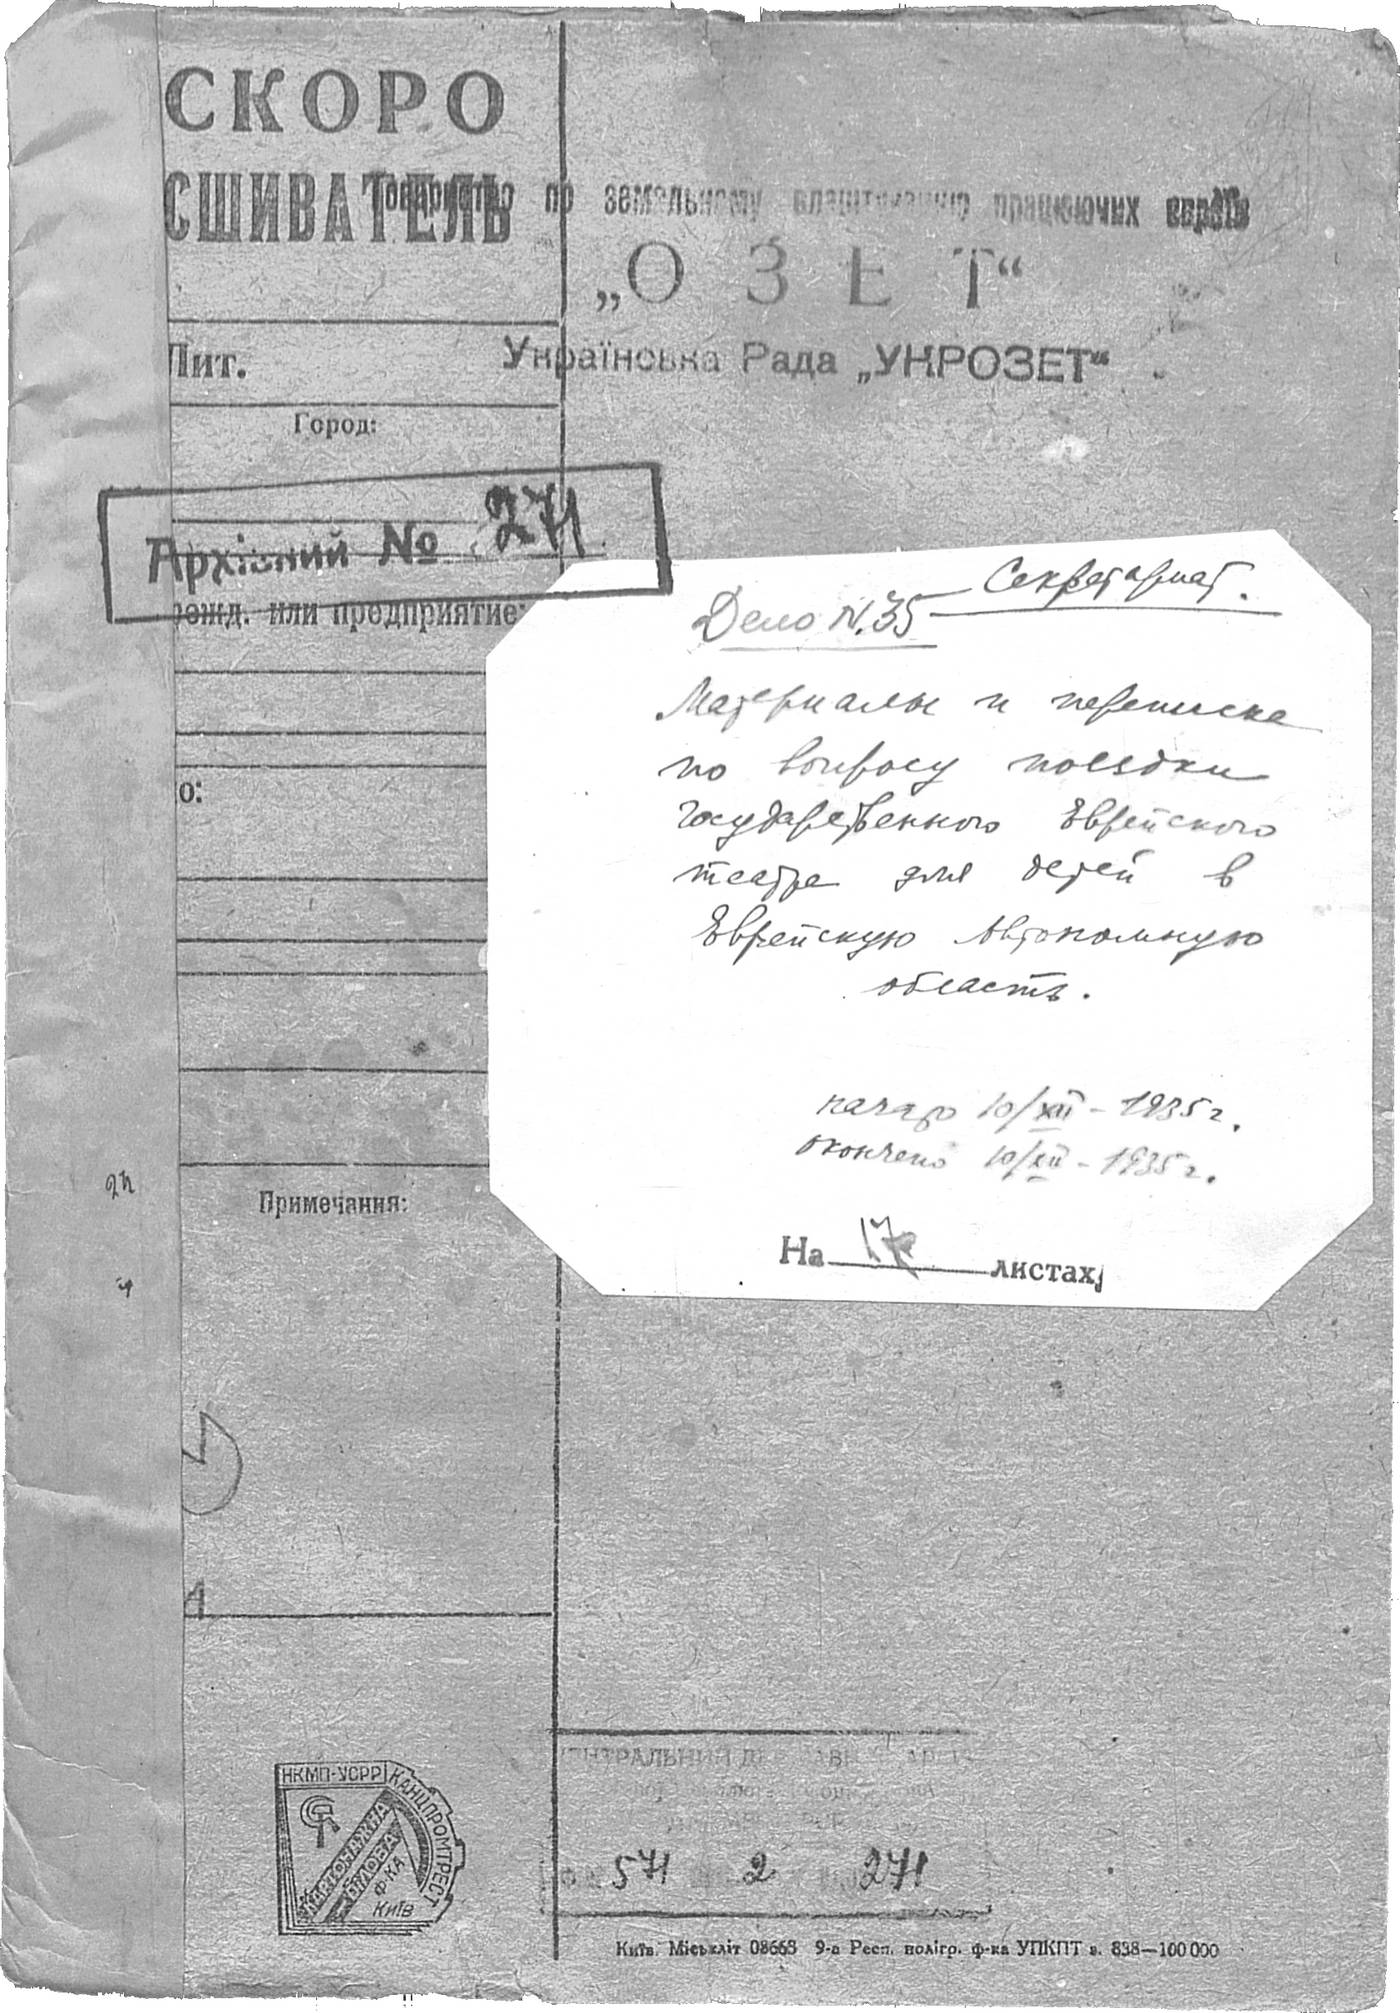 СКОРО
СШИВАТЕЛЬ
Товариство по земельному влаштуванню працюючих євреїв
„ОЗЕТ“
Українська Рада „УКРОЗЕТ“
Лит.
Город:
Архівний № 271
режд. или предприятие:
о:
Секретариат.
Дело N.35
Материалы и переписка
по вопросу поездки
государственного Еврейского
театра для детей в
Еврейскую Автономную
область.
начато 10/XII – 1935 г.
окончено 10/XII – 1935 г.
На 17 листах
Примечания:
НКМП-УСРР
КАНЦПРОМТРЕСТ
КАРТОНАЖНА
Ф-КА
Київ
ЕНТРАЛЬНИЙ
571 2 271
Київ. Міськліт 08663 9-а Респ. полігр. ф-ка УПКПТ з. 838—100 000